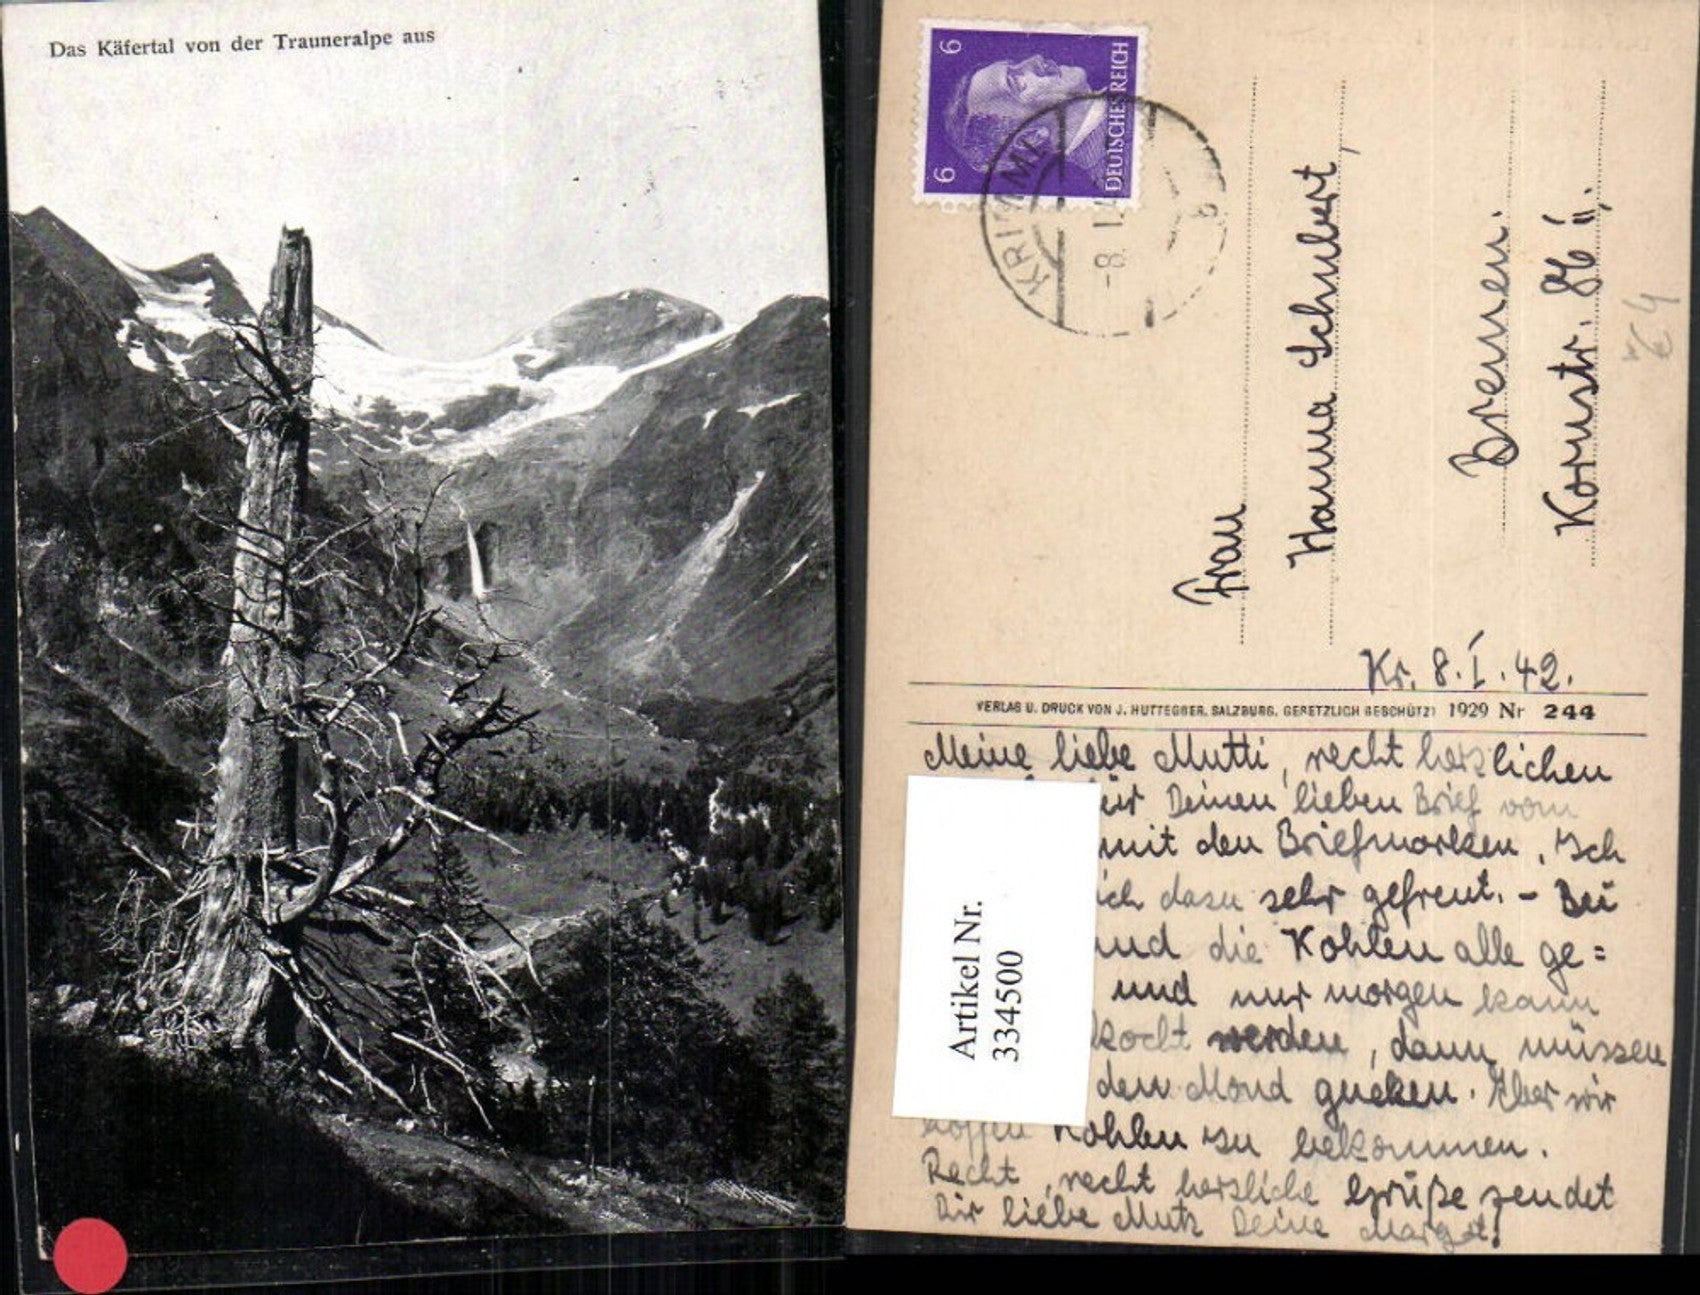 Das Käfertal von der Trauneralpe aus
6
6
DEUTSCHES REICH
KRIMML
-8. 1.4
Frau
Hanna Schubert,
Bremen.
Kornstr.
Kr. 8. I. 42.
VERLAG U. DRUCK VON J. HUTTEGGER, SALZBURG. GESETZLICH GESCHÜTZT 1929 Nr 244
Meine liebe Mutti, recht herzlichen
für Deinen lieben Brief vom
mit den Briefmarken. Ich
ich dazu sehr gefreut. - Bei
und die Kohlen alle ge=
und nur morgen kann
kocht werden, dann müssen
den Mond gucken. Aber wir
hoffen Kohlen zu bekommen.
Recht, recht herzliche Grüße sendet
Dir liebe Mutz Deine Margot.
Artikel Nr.
334500